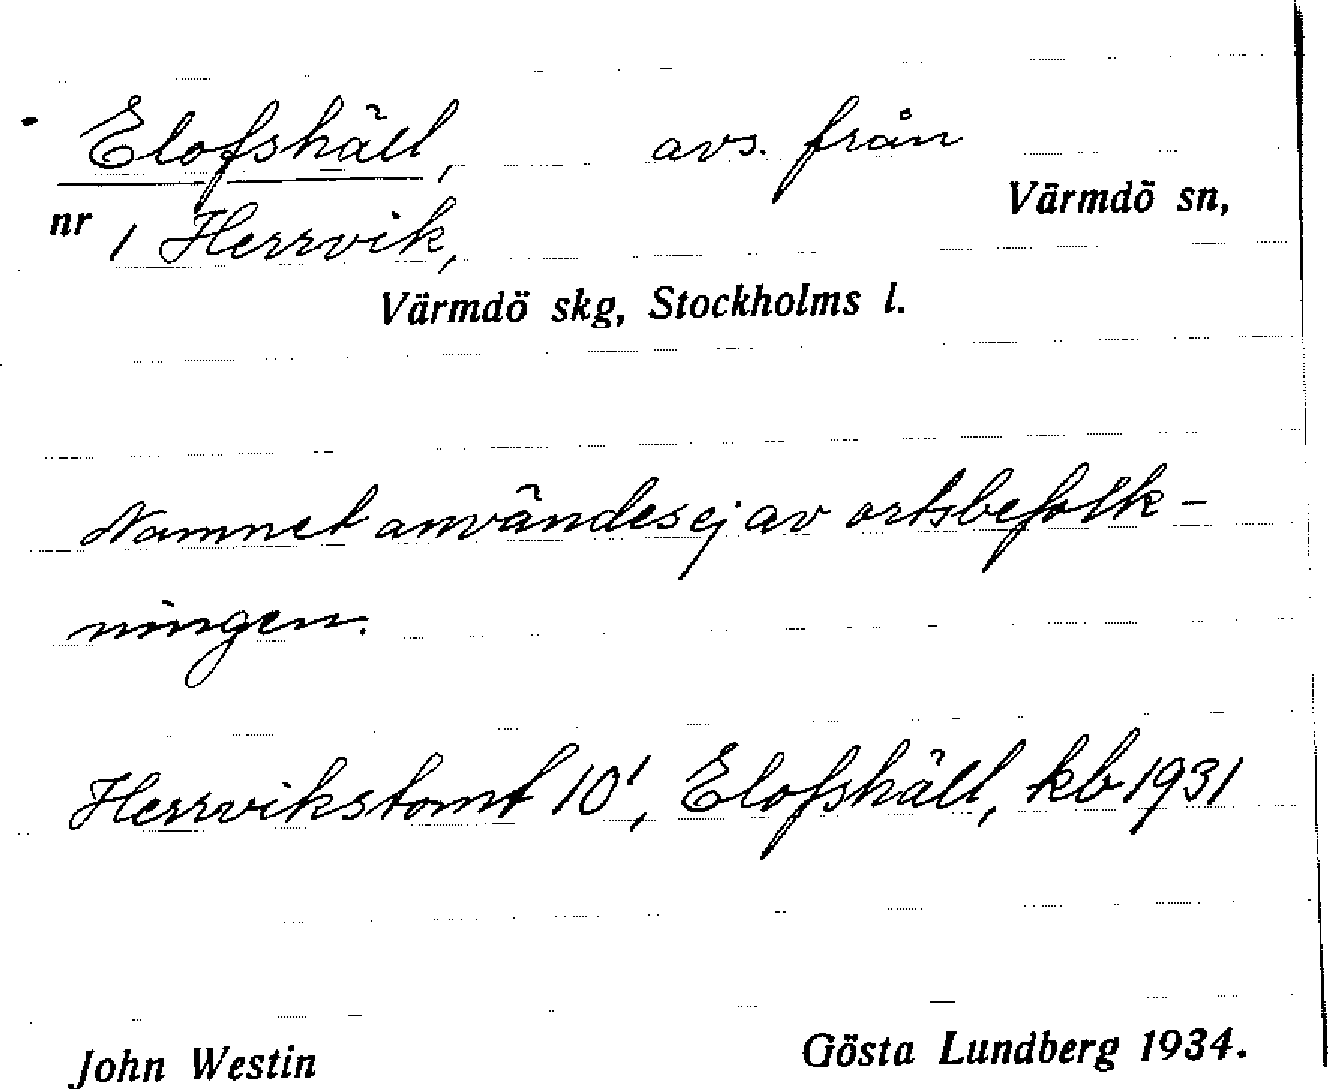 Elofshäll, avs. från
Värmdö sn,
nr 1 Herrvik,
Värmdö skg, Stockholms l.
Namnet användes ej av ortsbefolk-
ningen.
Herrvikstomt 10¹, Elofshäll, kb 1931
John Westin Gösta Lundberg 1934.